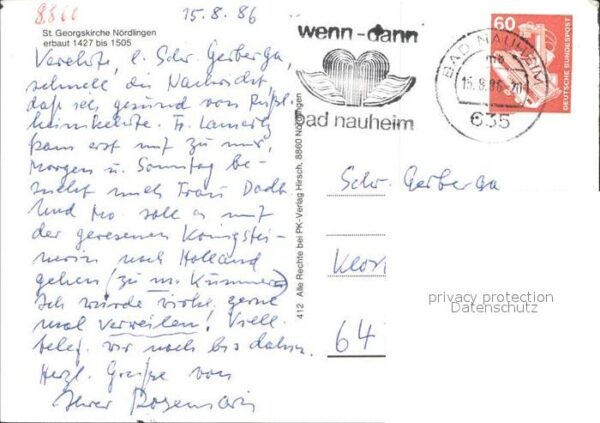 8860
15.8.86
St. Georgskirche Nördlingen
erbaut 1427 bis 1505
Verehrte, l. Schr. Gerberga,
schnell die Nachricht
daß ich gesund von
heimkehrte. Fr.
kam erst mit zu mir,
Morgen u. Sonntag be-
sucht mich Frau
Und Mo. soll es mit
der genesenen Königstei-
nerin nach Holland
gehen (zu m. Kummer)
Ich würde wirkl. gerne
mal verweilen! Viell.
telef. wir noch bis dahin.
Herzl. Grüße von
Ihrer Rosemarie
412 Alle Rechte bei PK-Verlag Hirsch, 8860 Nördlingen
wenn-dann
bad nauheim
BAD NAUHEIM
15.8.86-20
635
60
DEUTSCHE BUNDESPOST
Schr. Gerberga
64
privacy protection
Datenschutz